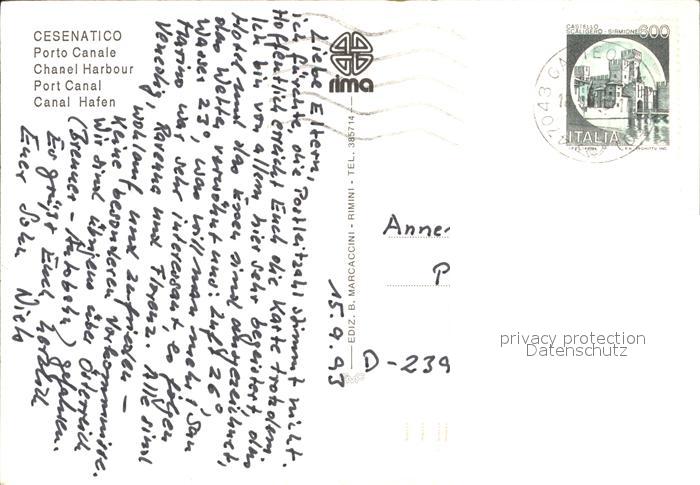 CESENATICO
Porto Canale
Chanel Harbour
Port Canal
Canal Hafen
rima
EDIZ. B. MARCACCINI - RIMINI - TEL. 385714
Liebe Eltern,
ich fürchte, die Postleitzahl stimmt nicht.
Hoffentlich erreicht Euch die Karte trotzdem.
Ich bin von allem hier sehr begeistert, das
Hotel und das Essen sind ausgezeichnet,
das Wetter verwöhnt uns: Luft 26°
Wasser 23°, was will man mehr? San
Marino war sehr interessant, es folgen
Venedig, Ravenna und Florenz. Alle sind
wohlauf und zufrieden –
keine besonderen Vorkommnisse.
Wir sind übrigens über Österreich
(Brenner-Autobahn) gefahren.
Es grüßt Euch herzlich
Euer Sohn
15.9.93
CASTELLO
SCALIGERO - SIRMIONE
600
ITALIA
47043
Anne
P
D-239
privacy protection
Datenschutz